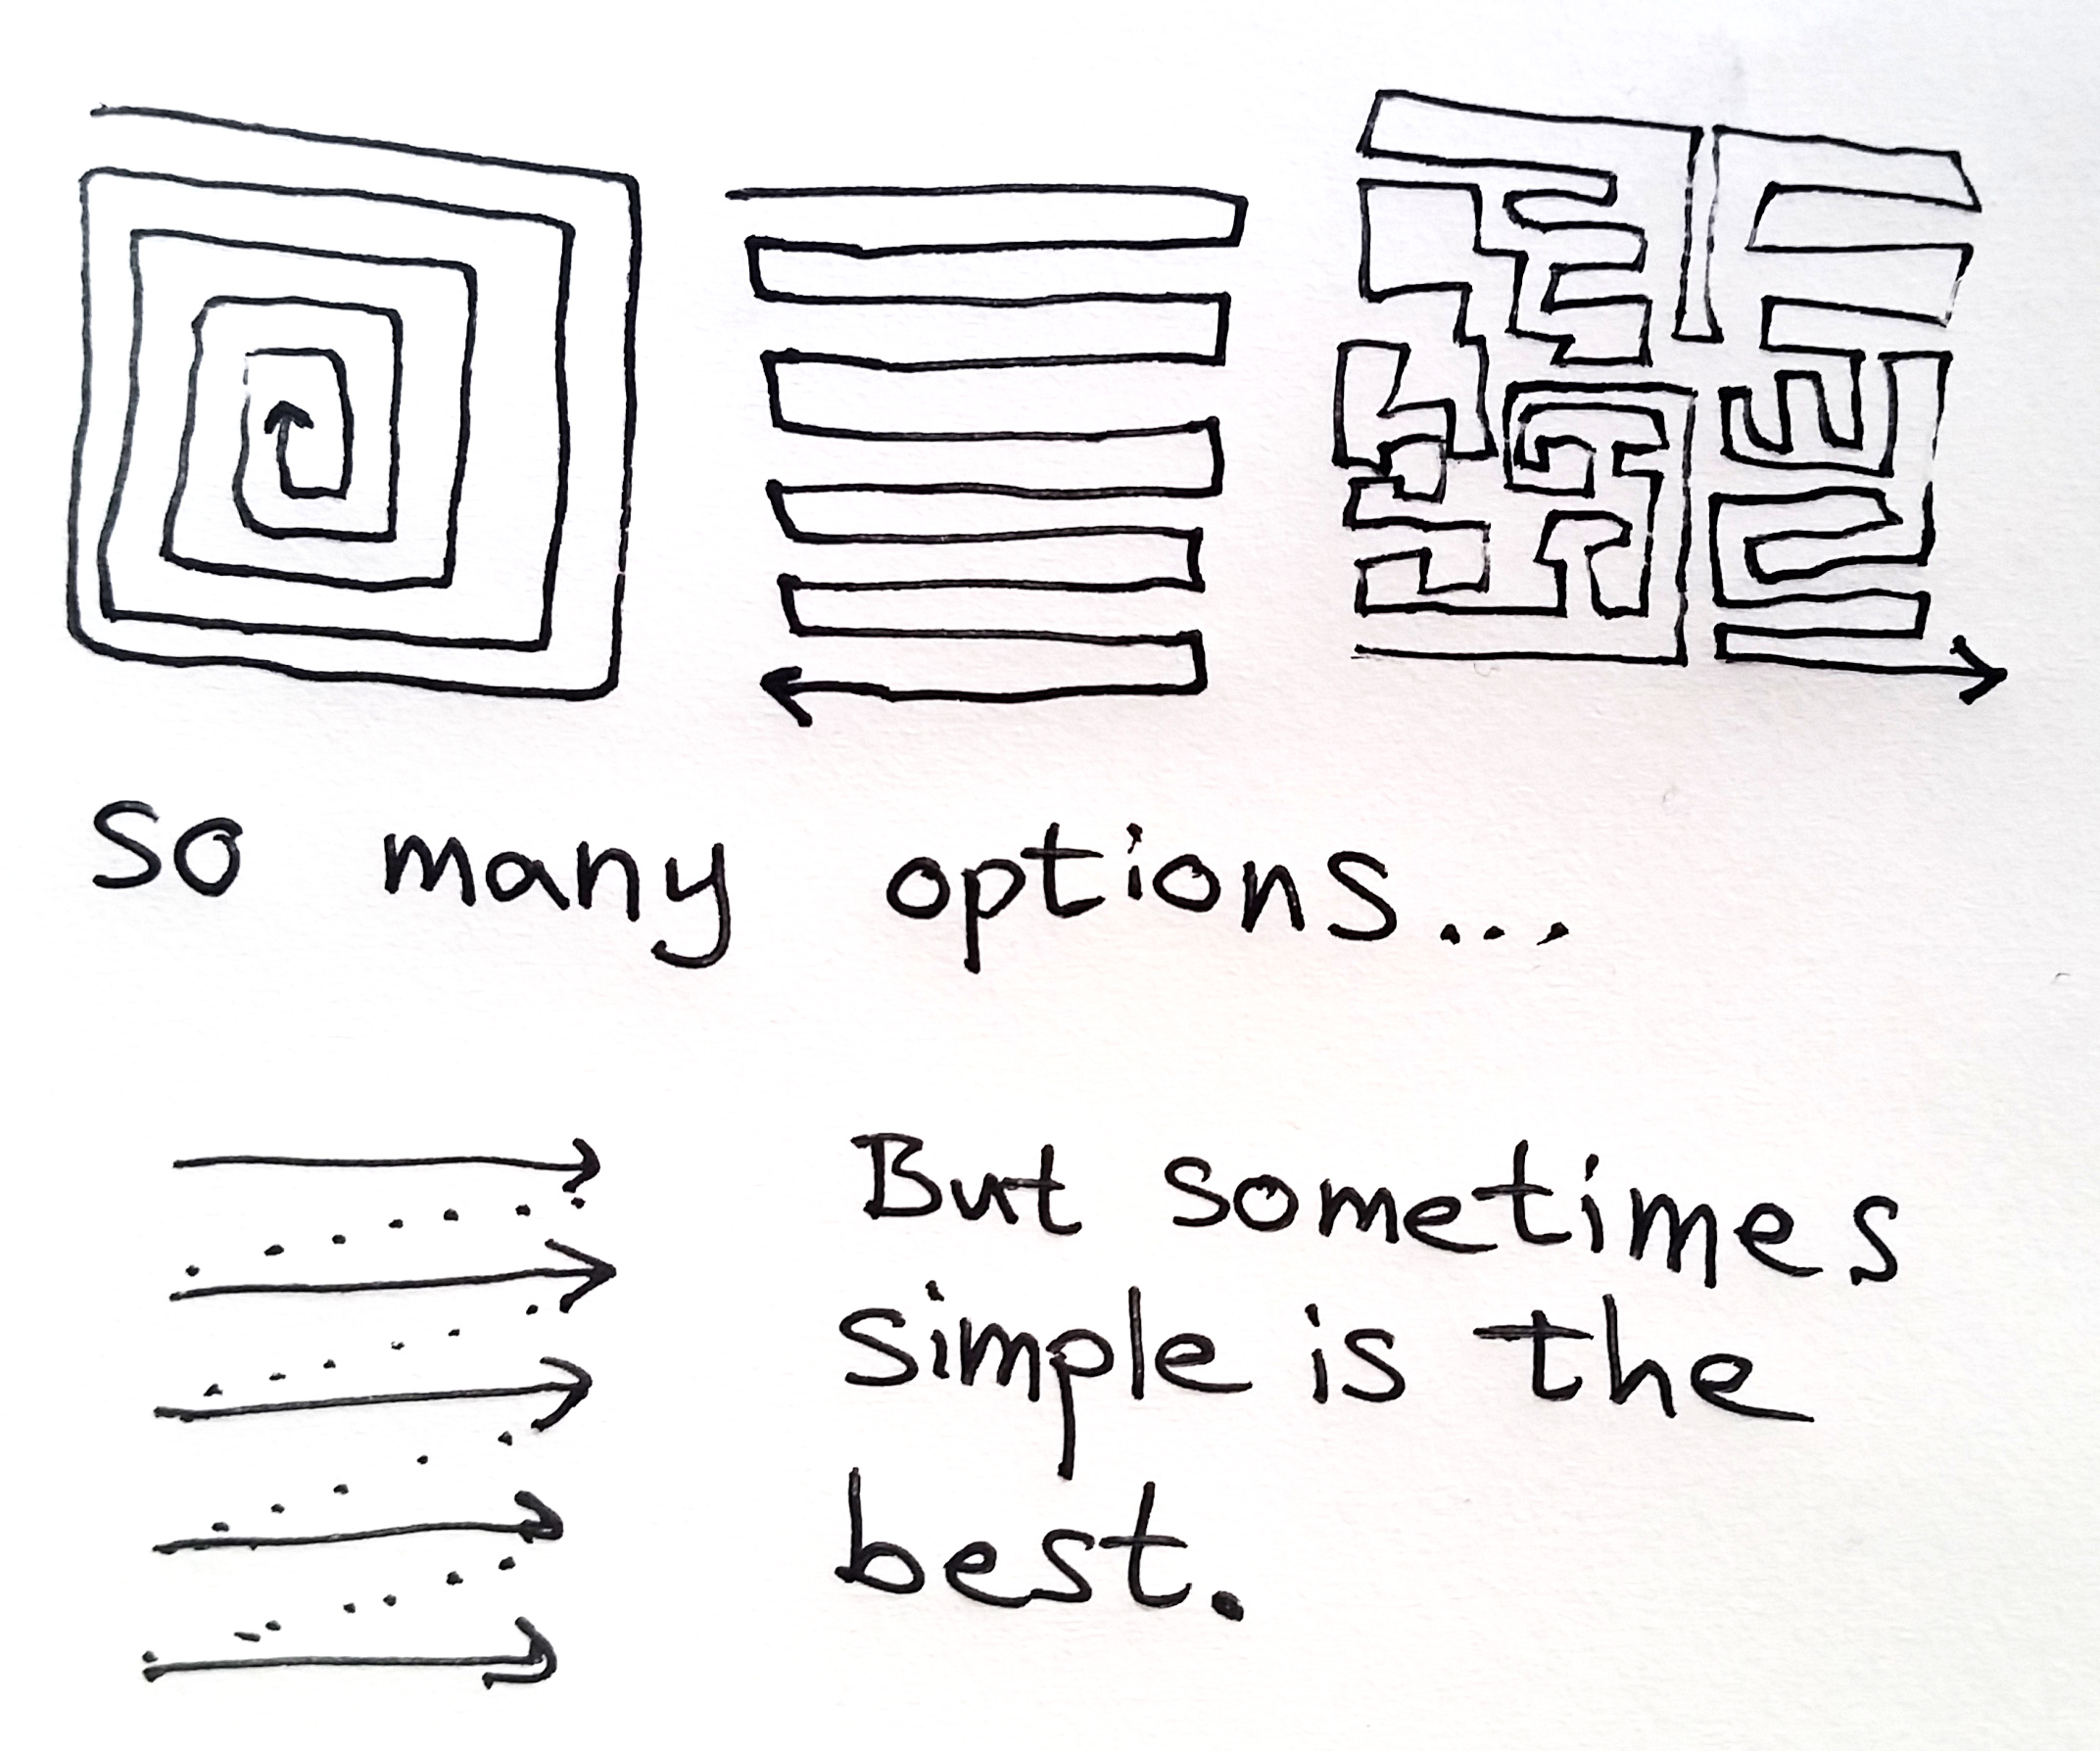 so many options...
But sometimes
simple is the
best.